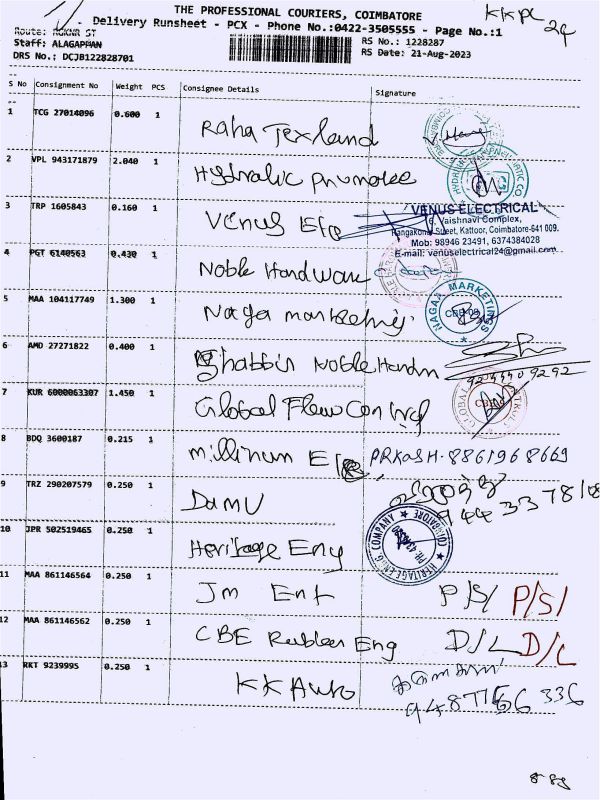 THE PROFESSIONAL COURIERS, COIMBATORE
KKPC
24
Delivery Runsheet - PCX - Phone No.:0422-3505555 - Page No.:1
Route: RGKNR ST
Staff: ALAGAPPAN
RS No.: 1228287
DRS No.: DCJB122828701
RS Date: 21-Aug-2023
S No Consignment No Weight PCS Consignee Details Signature
1 TCG 27014096 0.600 1 Raha Texland
2 VPL 943171879 2.040 1 Hydralic pnumatee
3 TRP 1605843 0.160 1 Venus Ele
VENUS ELECTRICAL
6, Vaishnavi Complex,
Rangakonar Street, Kattoor, Coimbatore-641 009.
Mob: 98946 23491, 6374384028
E-mail: venuselectrical24@gmail.com
4 PGT 6140563 0.430 1 Noble Hardware
5 MAA 104117749 1.300 1 Naga marketing
NAGAA MARKETINGS
6 AMD 27271822 0.400 1 Shabbir Noble Hardw
7 KUR 6000063307 1.450 1 Global Flow Control
GLOBAL
8 BDQ 3600187 0.215 1 millinum Ele PRKASH. 8861968669
9 TRZ 290207579 0.250 1 Damu
10 JPR 502519465 0.250 1 Heritage Eng
HERITAGE ENGG COMPANY
COIMBATORE
11 MAA 861146564 0.250 1 Jm Ent P/S/ P/S/
12 MAA 861146562 0.250 1 CBE Rubber Eng D/L D/L
13 RKT 9239995 0.250 1 KK Auto